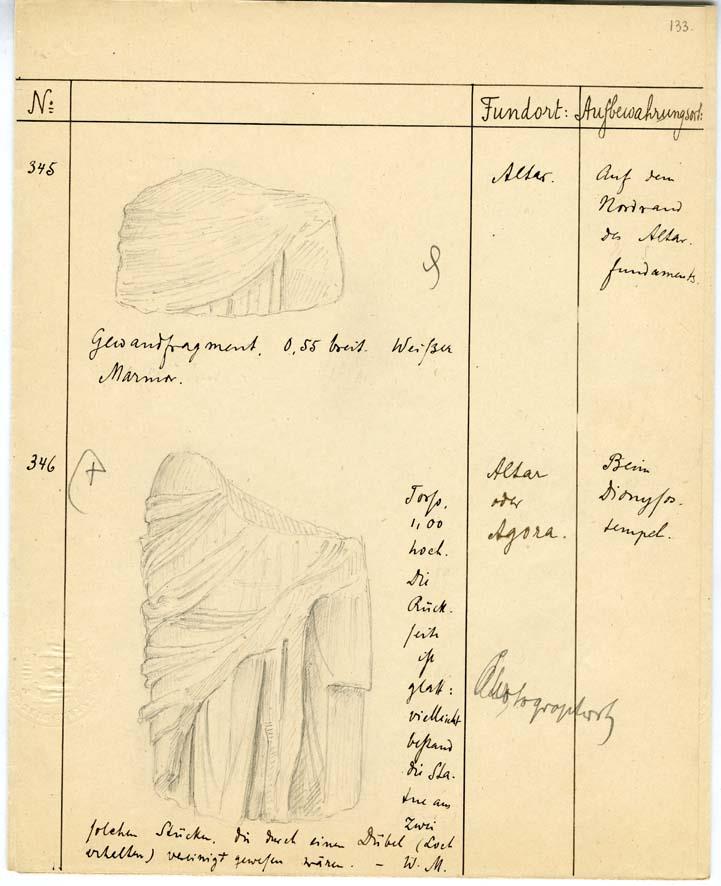 133.
N: Fundort: Aufbewahrungsort:
345 Altar. Auf dem
Nordrand
des Altar.
fundaments.
Gewandfragment. 0,55 breit. Weißer
Marmor.
346 Altar
oder
Agora.
Beim
Dionysos.
tempel.
Torso,
1,00
hoch.
Die
Rück.
seite
ist
glatt:
vielleicht
bestand
die Sta.
tue aus
zwei
solchen Stücken, die durch einen Dübel (Loch
erhalten) vereinigt gewesen wären. – W. M.
Photographiert